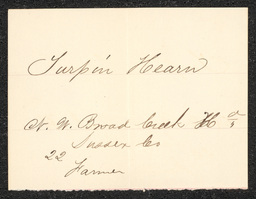 Turpin Hearn
N. W. Broad Creek H
Sussex Co
22
Farmer